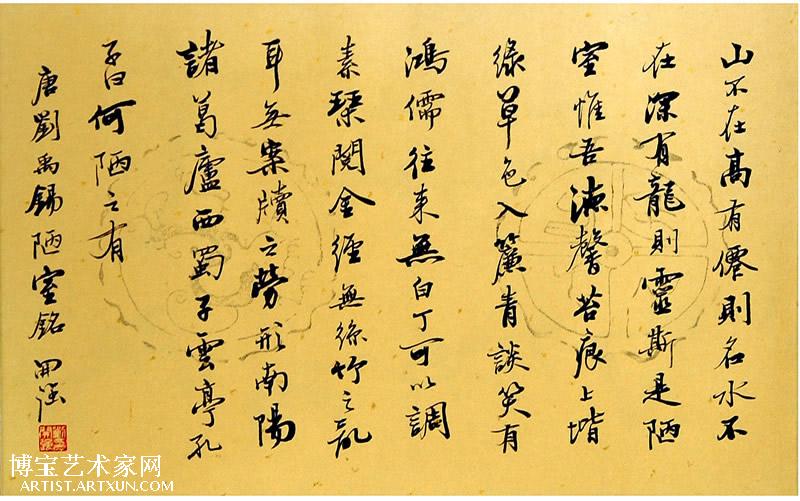 山不在高有僊則名水不
在深有龍則靈斯是陋
室惟吾德馨苔痕上堦
綠草色入簾青談笑有
鴻儒往來無白丁可以調
素琴閱金經無絲竹之亂
耳無案牘之勞形南陽
諸葛廬西蜀子雲亭孔
子曰何陋之有
唐劉禹錫陋室銘
博宝艺术家网
ARTIST.ARTXUN.COM